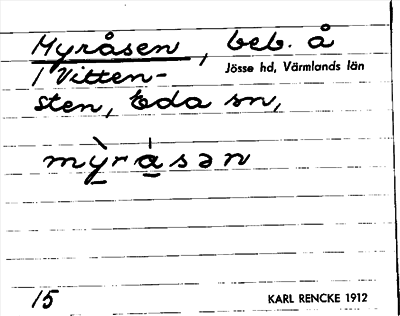 Myråsen, beb. å
1 Vitten- Jösse hd, Värmlands län
sten, Eda sn,
mỳrásən
15 KARL RENCKE 1912